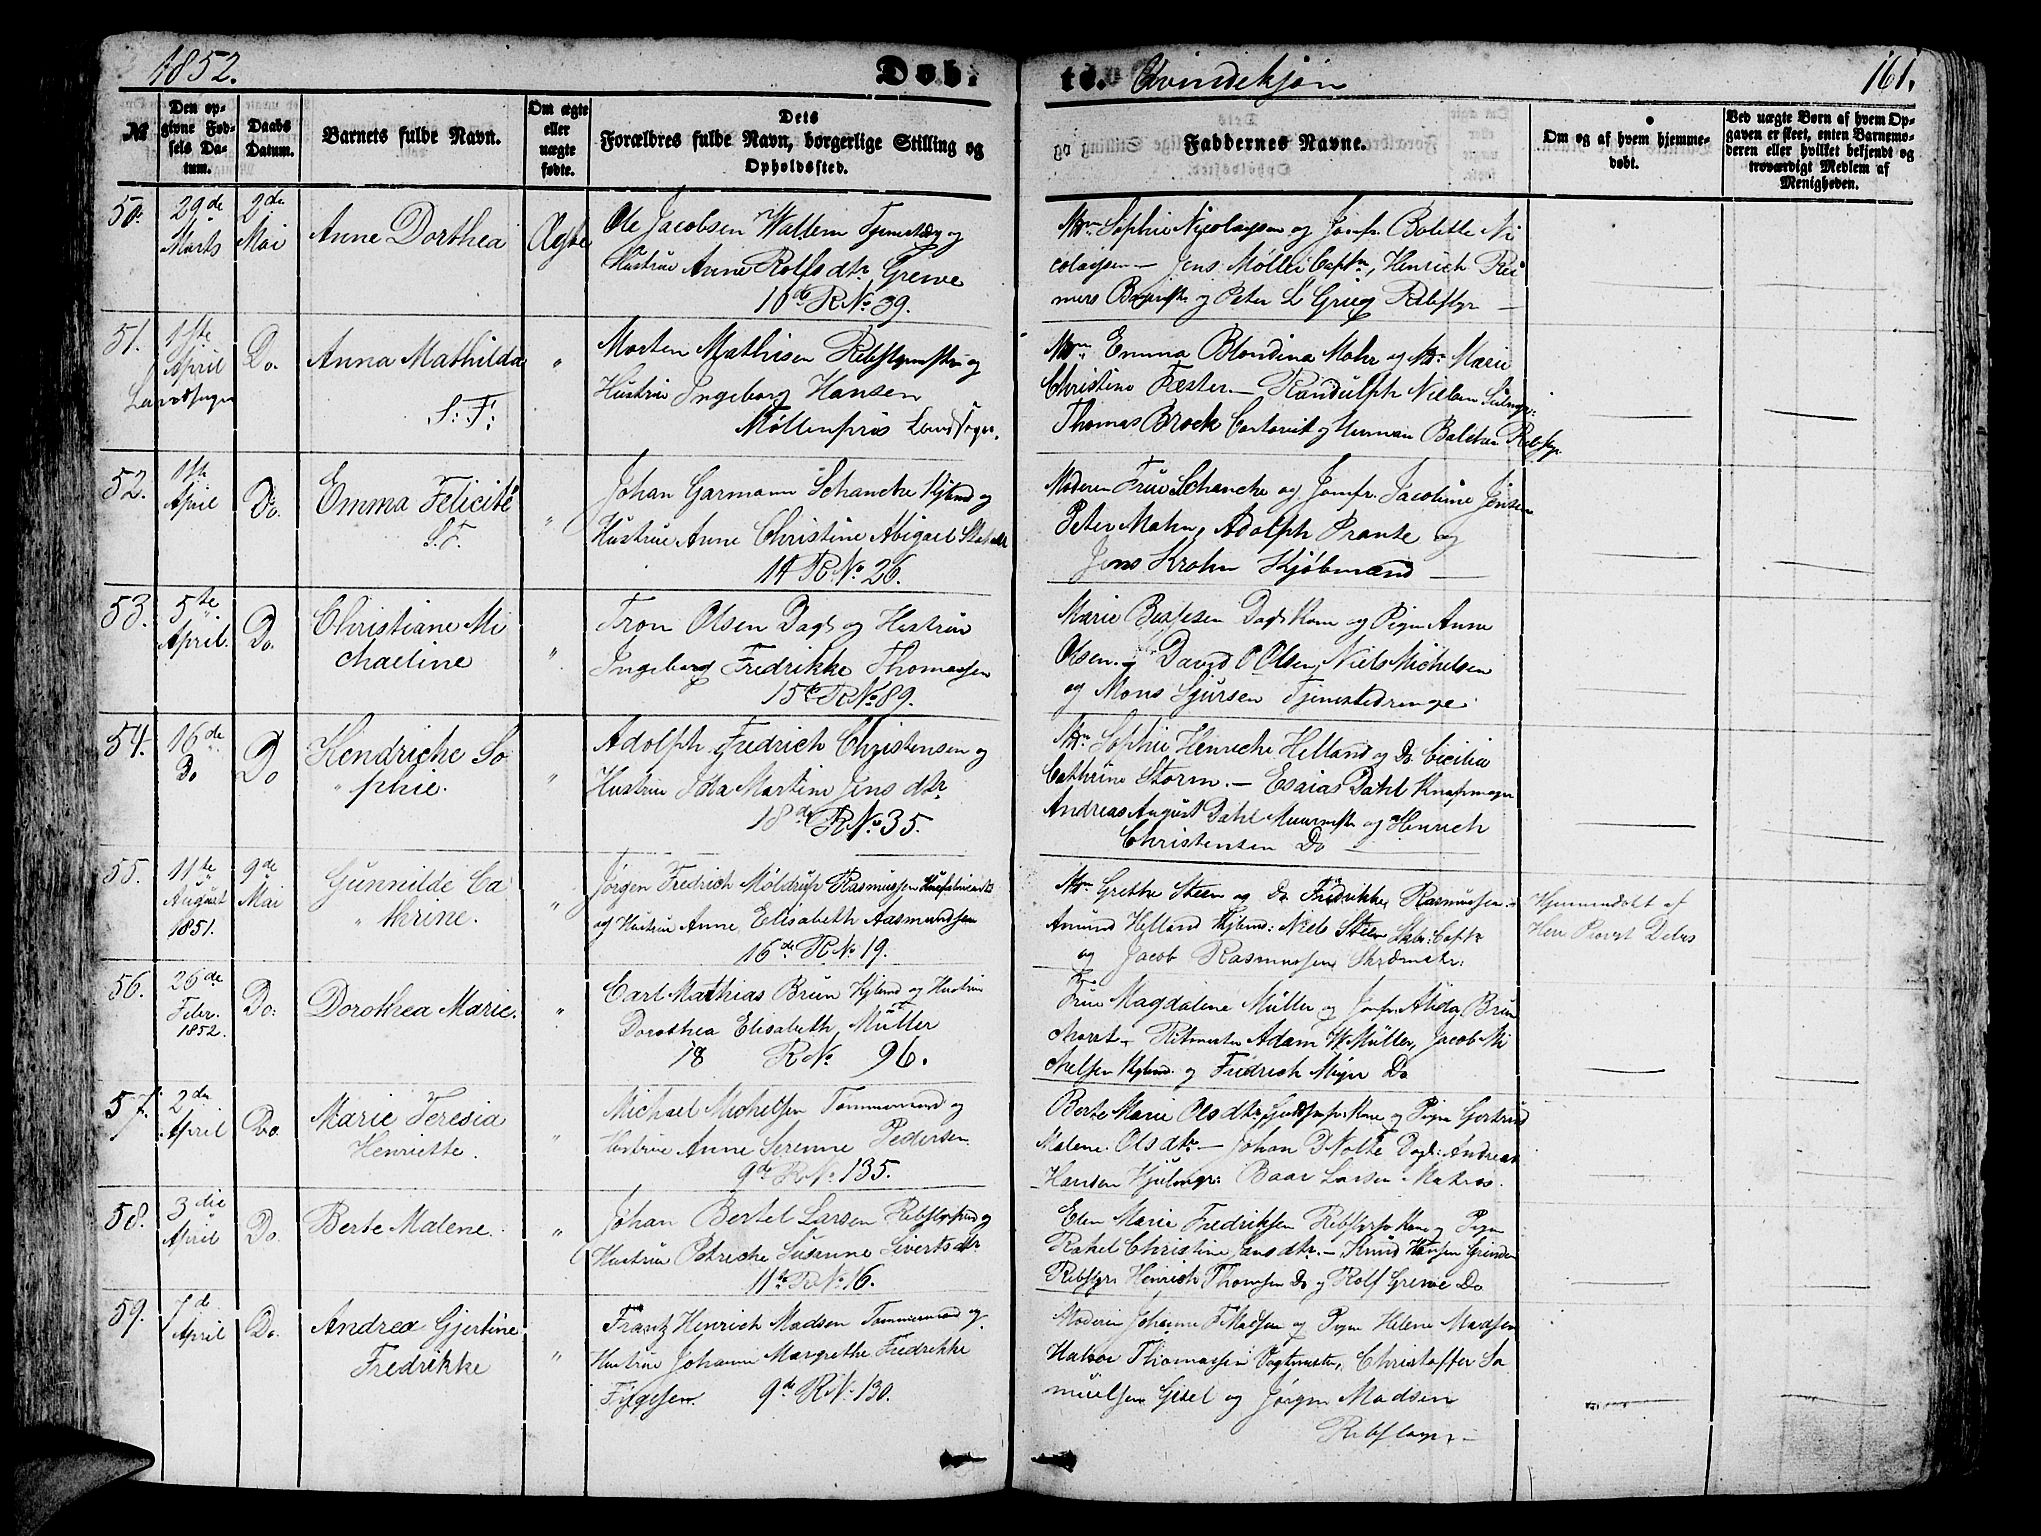 1852.
Døb-
te. Qvindekjøn
161.
№
Den opgivne Fødsels Datum.
Daabs Datum.
Barnets fulde Navn.
Om ægte eller uægte fødte.
Dets Forældres fulde Navn, borgerlige Stilling og Opholdssted.
Faddernes Navne.
Om og af hvem hjemmedøbt.
Ved uægte Børn af hvem Opgaven er skeet, enten Barnemoderen eller hvilket bekjendt og troværdigt Medlem af Menigheden.
50.
29de Marts
2den Mai
Anne Dorthea
Ægte
Ole Jacobsen Wallem og
Hustrue Anne Rolfsdtr Greve
10de R No. 39.
Sophie Nicolaysen og Jomfr. Bolette Ni
colaysen — Jens Møller Captn, Henrich Rei
mers og Peter L Grieg Rebslgr —
51.
1ste April
Landsogn
Do.
Anna Mathilda
S: F:
"
Morten Mathisen og
Hustrue Ingeborg Hansen
Møllenpris Landsogn.
Emma Blondina Mohr og Marie
Christine Fæster — Randulph Nielsen
Thomas Brock og Herman Rebslgr
52.
1ste April
Do.
Emma Felicité
S.F.
"
Johan Garmann Schancke Kjbmd og
Hustrue Anne Christine Abigael
14 R No. 26.
Moderen Frue Schancke og Jomfr. Jacobine Jensen
Peter Mohn, Adolph Prante og
Jens Krohn Kjøbmænd —
53.
5te April.
Do.
Christiane Mi
chaeline
"
Tron Olsen Dagl og Hustrue
Ingeborg Fredrikke Thomassen
15de R No. 89.
Marie Dagl Kone og Pigen Anne
Olsen. — David O Olsen, Niels Michelsen
og Mons Sjursen Tjenestedrenge.
54.
16de Do
Do
Hendriche So
phie.
"
Adolph Fredrich Christensen og
Hustrue Ida Martine Jensdtr
18de R No. 35.
Sophie Henriche Helland og Do Cicilia
Cathrine Storm. — Esaias Dahl Knapmager
Andreas August Dahl Muurmstr og Henrich
Christensen Do —
55.
11te August 1851.
9de Mai
Gunnilde Ca
thrine.
"
Jørgen Fredrich Møldrup Rasmussen
og Hustrue Anne Elisabeth Aasmundsen
16de R No. 19.
Grethe Steen og Do Fredrikke Rasmussen —
Amund Helland Kjbmd: Niels Steen Skbs: Captn
og Jacob Rasmussen
Hjemmedøbt af
Herr Provst Debes
56.
26de Febr. 1852.
Do:
Dorothea Marie.
"
Carl Mathias Brun Kjbmd og Hustrue
Dorothea Elisabeth Müller
18 R No 96.
Frue Magdalene Müller og Jomfr. Alida Brun
Ritmester Adam W Müller, Jacob Mi
chelsen Kjbmd. og Fredrich Meyer Do
57.
2den April
Do.
Marie Teresia
Henriette.
"
Michael Michelsen Tømmermand og
Hustrue Anne Serenne Pedersen
9de R No. 135.
Berte Marie Olsdtr Kone og Pigen Gertrud
Malene Olsdtr — Johan D Nolte Dagl: Andreas
Hansen Baar Larsen Matros.
58.
3die April
Do.
Berte Malene.
"
Johan Bertel Larsen og
Hustrue Petriche Susanne Sivertsdtr
11te R No. 16.
Elen Marie Fredriksen Kone og Pigen
Rakel Christine Jansdtr. — Knud Hansen Grinden
Rebslgr. Henrich Thomsen Do og Rolf Greve Do
59.
7de April
Do.
Andrea Gjertine
Fredrikke
"
Frantz Henrich Madsen Tømmermand og
Hustrue Johanne Margrethe Fredrikke
9de R No. 130.
Moderen Johanne F Madsen og Pigen Helene Madsen
Halvor Thomassen Vagtmester, Christoffer Sa
muelsen Gisel og Jørgen Madsen